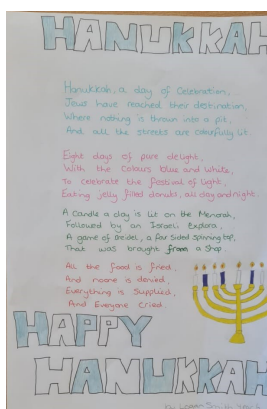 HANUKKAH
Hanukkah, a day of Celebration,
Jews have reached their destination,
Where nothing is thrown into a pit,
And all the streets are colourfully lit.
Eight days of pure delight,
With the colours blue and white,
To celebrate the festival of light,
Eating jelly filled donuts, all day and night.
A candle a day is lit on the Menorah,
Followed by an Israeli
A game of dreidel, a four sided spinning top,
That was brought from a shop.
All the food is fried,
And noone is denied,
Everything is Supplied,
And Everyone cried
HAPPY
HANUKKAH